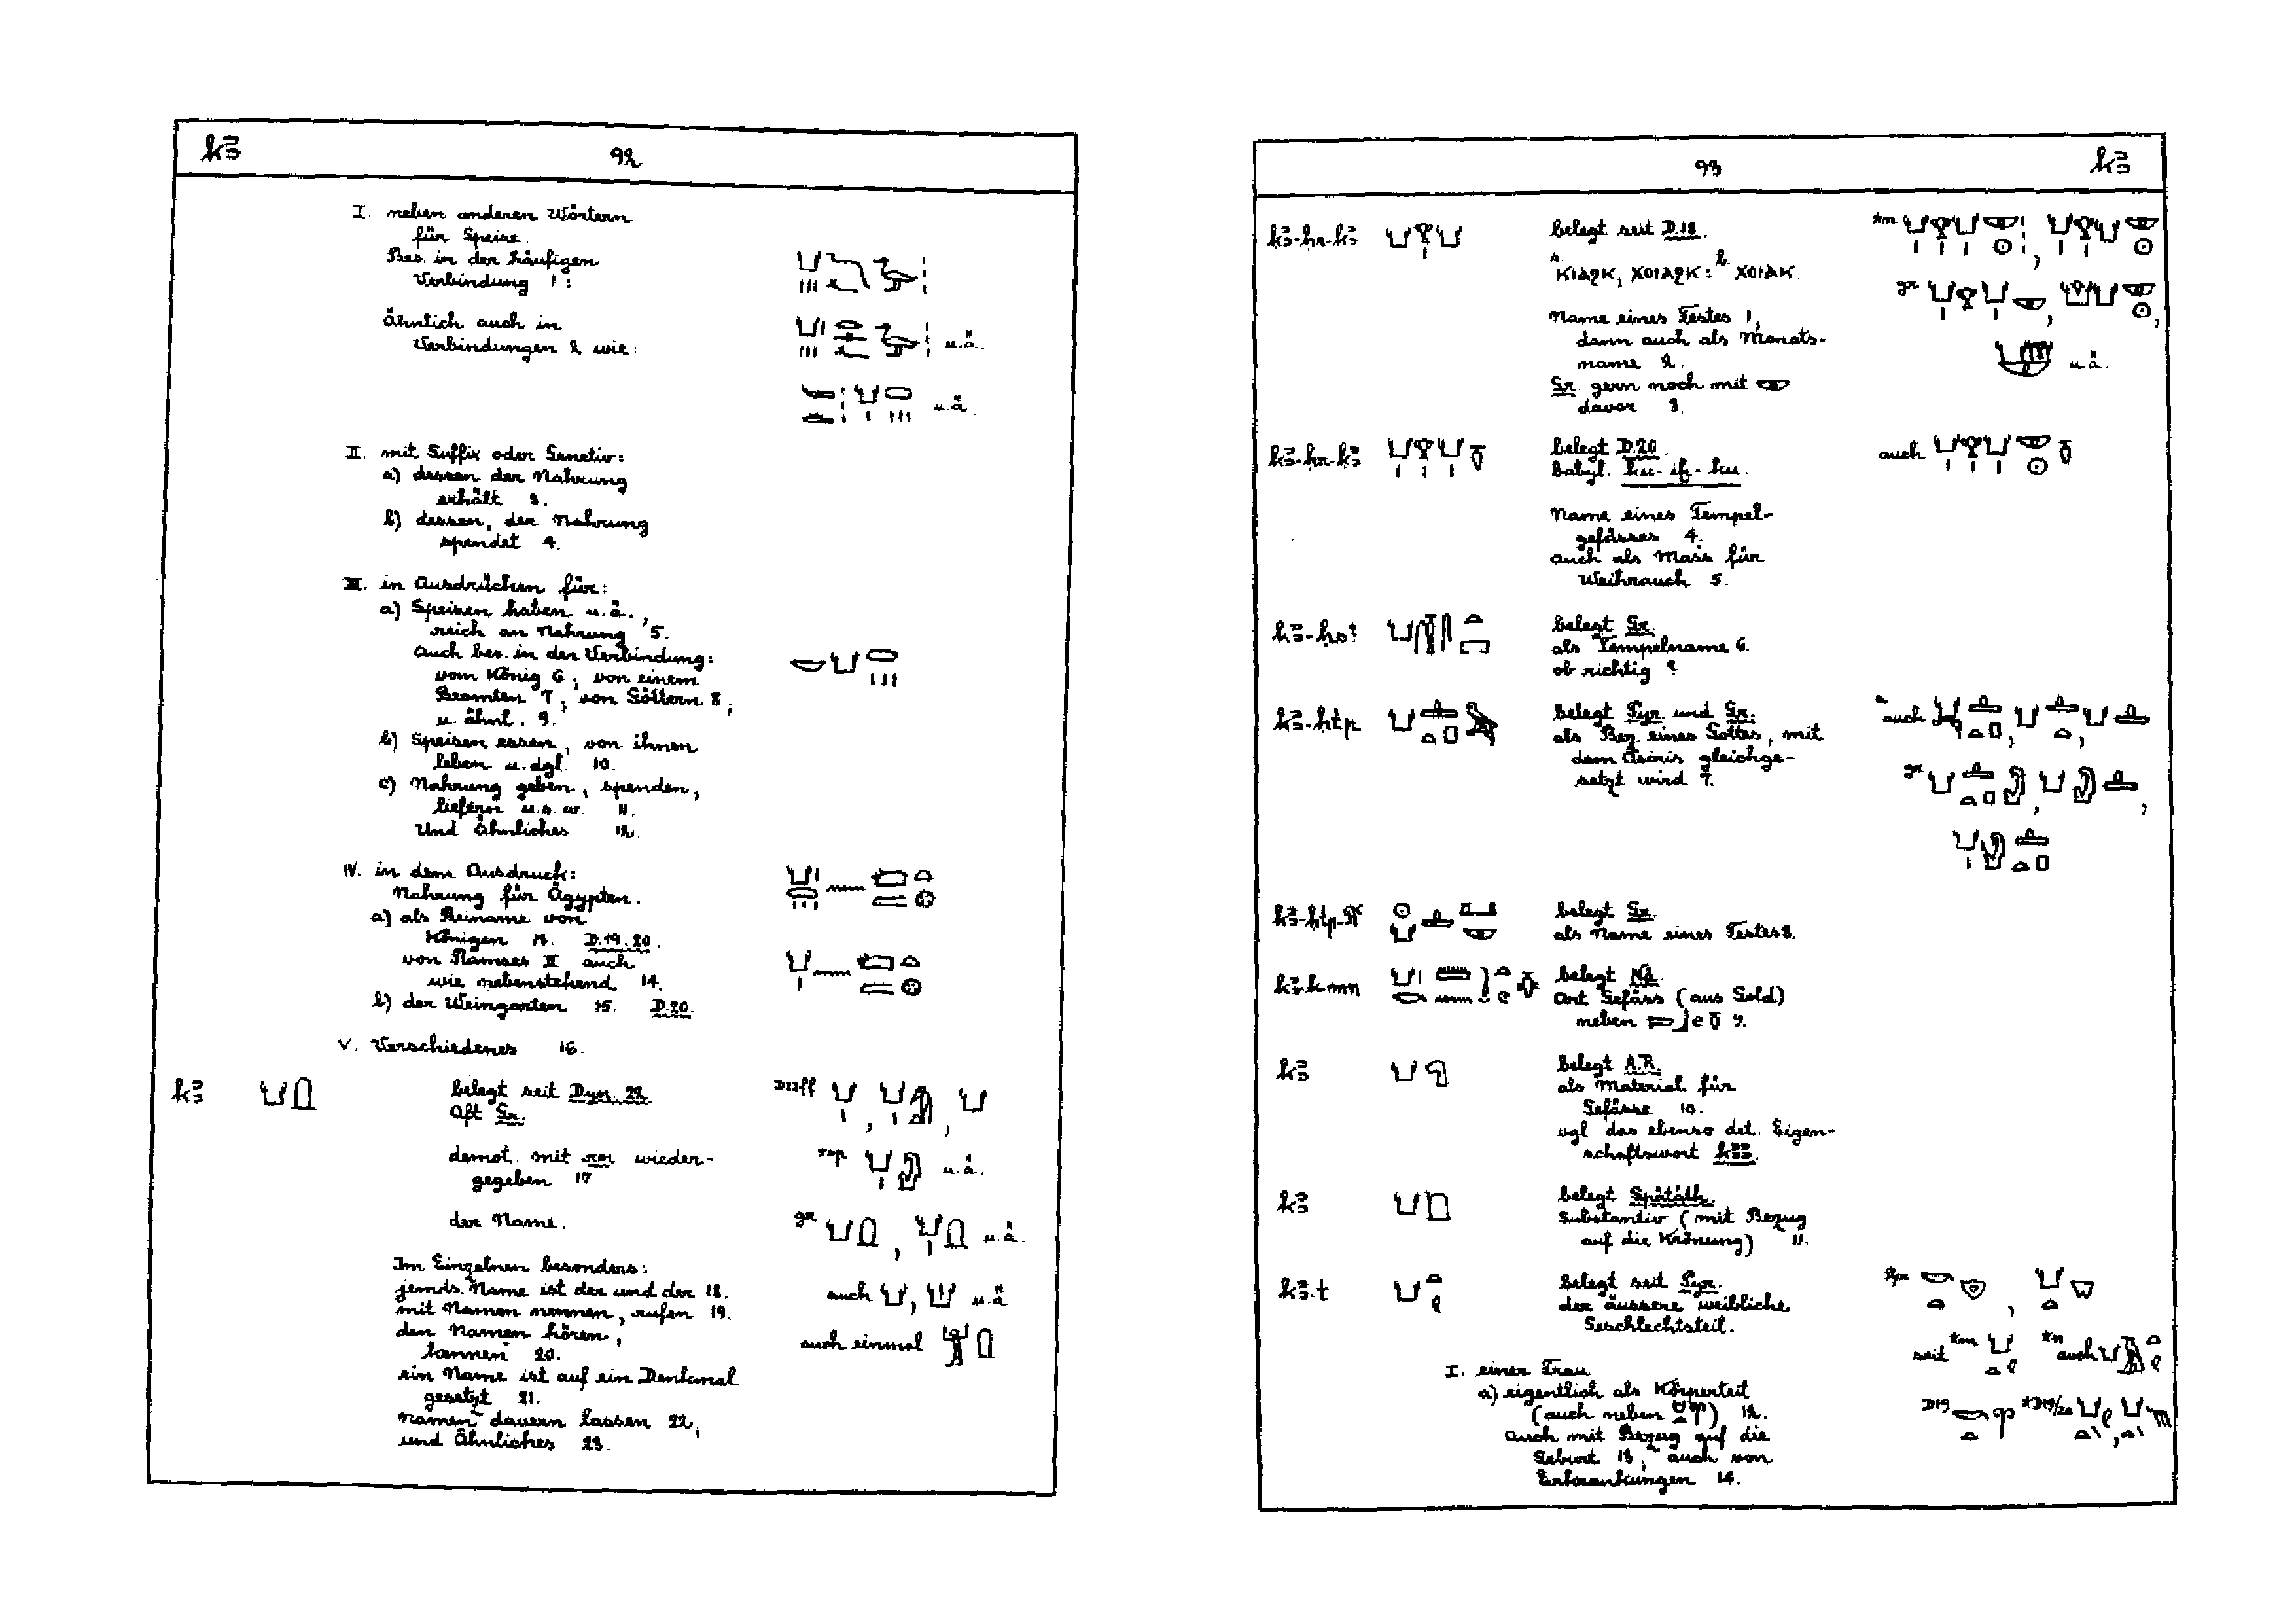 kꜣ
92
I. neben anderen Wörtern
für Speise.
Bes. in der häufigen
Verbindung 1:
ähnlich auch in
Verbindungen 2 wie:
u.ä.
u.ä.
II. mit Suffix oder Genetiv:
a) dessen der Nahrung
erhält 3.
b) dessen, der Nahrung
spendet 4.
III. in Ausdrücken für:
a) Speisen haben u.ä.,
reich an Nahrung 5.
Auch bes. in der Verbindung:
vom König 6; von einem
Beamten 7; von Göttern 8;
u. ähnl. 9.
b) Speisen essen, von ihnen
leben u. dgl. 10.
c) Nahrung geben, spenden,
liefern u.s.w. 11.
Und Ähnliches 12.
IV. in dem Ausdruck:
Nahrung für Ägypten.
a) als Beiname von
Königen 13. D.19.20.
von Ramses II auch
wie nebenstehend 14.
b) der Weingarten 15. D.20.
V. Verschiedenes 16.
kꜣ belegt seit Dyn. 22. D22ff
Oft Gr.
demot. mit rn wieder- u.ä.
gegeben 17
der Name. gr u.ä.
Im Einzelnen besonders:
jemds. Name ist der und der 18. auch u.ä
mit Namen nennen, rufen 19.
den Namen hören, auch einmal
kennen 20.
ein Name ist auf ein Denkmal
gesetzt 21.
Namen dauern lassen 22,
und Ähnliches 23.
93
kꜣ
kꜣ-ḥr-kꜣ belegt seit D.18.
ⲕⲓⲁϩⲕ, ⲭⲟⲓⲁϩⲕ: ⲭⲟⲓⲁⲕ.
gr
Name eines Festes 1,
dann auch als Monats-
name 2. u.ä.
Gr. gern noch mit
davor 3.
kꜣ-ḥr-kꜣ belegt D.20. auch
Babyl. ku-iḫ-ku.
Name eines Tempel-
gefässes 4.
auch als Mass für
Weihrauch 5.
belegt Gr.
als Tempelname 6.
ob richtig ?
kꜣ-ḥtp belegt Pyr. und Gr. auch
als Bez. eines Gottes, mit
dem Osiris gleichge-
setzt wird 7. gr
belegt Gr.
als Name eines Festes 8.
belegt Nä.
Art Gefäss (aus Gold)
neben 9.
kꜣ belegt A.R.
als Material für
Gefässe 10.
vgl. das ebenso det. Eigen-
schaftswort
kꜣ belegt Spätäth.
Substantiv (mit Bezug
auf die Krönung) 11.
kꜣ.t belegt seit Pyr. Pyr
der äussere weibliche
Geschlechtsteil.
seit auch
I. einer Frau
a) eigentlich als Körperteil
(auch neben ) 12. D19 D19/20
Auch mit Bezug auf die
Geburt 13; auch von
Erkrankungen 14.